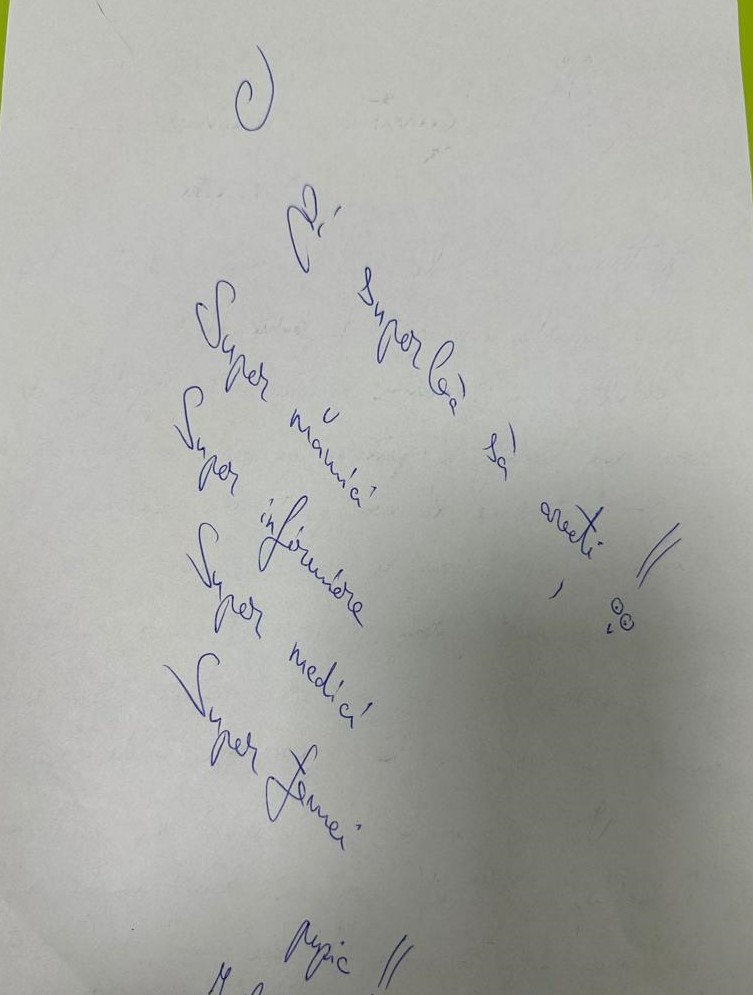 O
zi superbă să aveți !!
Super mămici
Super infirmiere
Super medici
Super femei
pupic !!